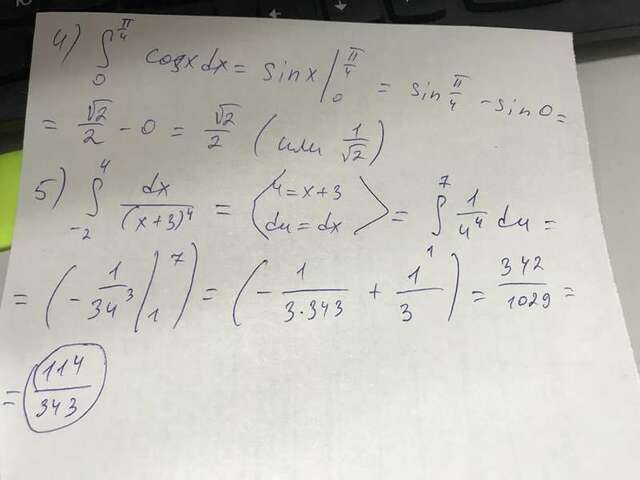 4) ∫₀^{π/4} cosx dx = sinx |₀^{π/4} = sin π/4 - sin0 =
= √2/2 - 0 = √2/2 (или 1/√2)
5) ∫₋₂^4 dx/(x+3)^4 = ⟨u=x+3 du=dx⟩ = ∫₁^7 1/u^4 du =
= (- 1/3u^3 |₁^7) = (- 1/3·343 + 1/3) = 342/1029 =
= 114/343